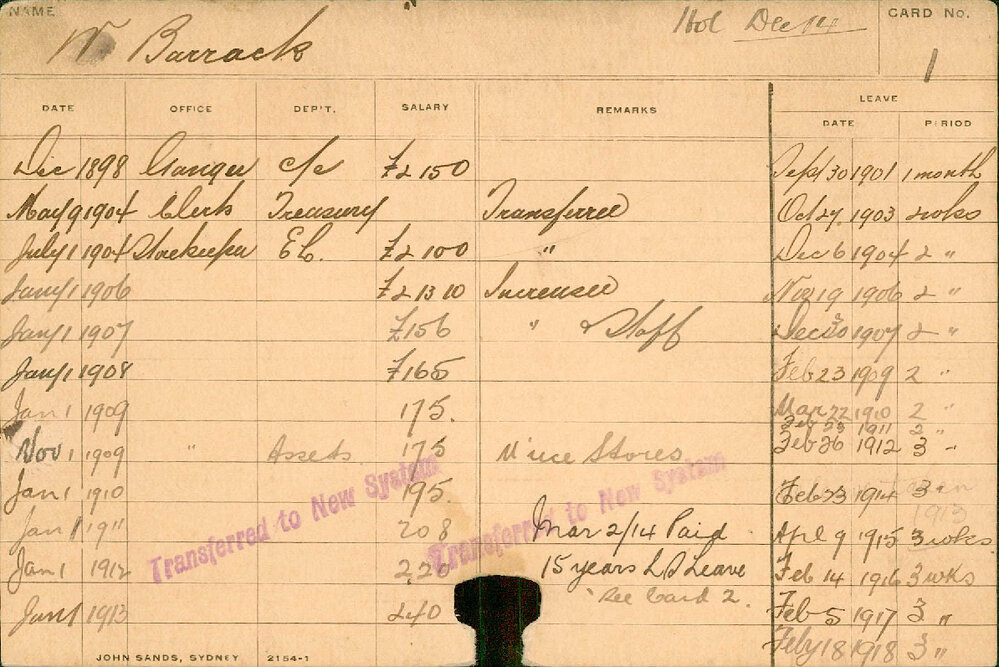 NAME
W Barrack
Hol Dec 14
CARD No.
1
DATE OFFICE DEP'T. SALARY REMARKS LEAVE
DATE PERIOD
Dec 1898 Ganger c/c £2 15 0 Sept 30 1901 1 month
May 9 1904 Clerk Treasury Transferred Oct 27 1903 2 wks
July 1 1904 Storekeeper E L. £2 10 0 " Dec 6 1904 2 "
Jany 1 1906 £2 13 10 Increased Nov 19 1906 2 "
Jany 1 1907 £156 " & Staff Dec 1907 2 "
Jany 1 1908 £165 Feb 23 1909 2 "
Jan 1 1909 175. Mar 22 1910 2 "
Feb 1911 2 "
Nov 1 1909 " Assets 175 Stores Feb 26 1912 3 "
Jan 1 1910 195. Feb 23 1914 3 "
1913
Jan 1 1911 208 Mar 2/14 Paid April 9 1915 3 wks
Jan 1 1912 220 15 years L S Leave Feb 14 1916 3 wks
See Card 2.
Jan 1 1913 240 Feb 5 1917 3 "
Feby 18 1918 3 "
Transferred to New System
Transferred to New System
JOHN SANDS, SYDNEY 2154-1